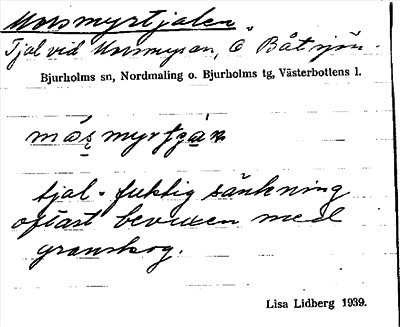 Morsmyrtjalen
Tjal vid Morsmyran, O Båtsjön.
Bjurholms sn, Nordmaling o. Bjurholms tg, Västerbottens l.
tjal = fuktig sänkning
oftast bevuxen med
granskog.
Lisa Lidberg 1939.